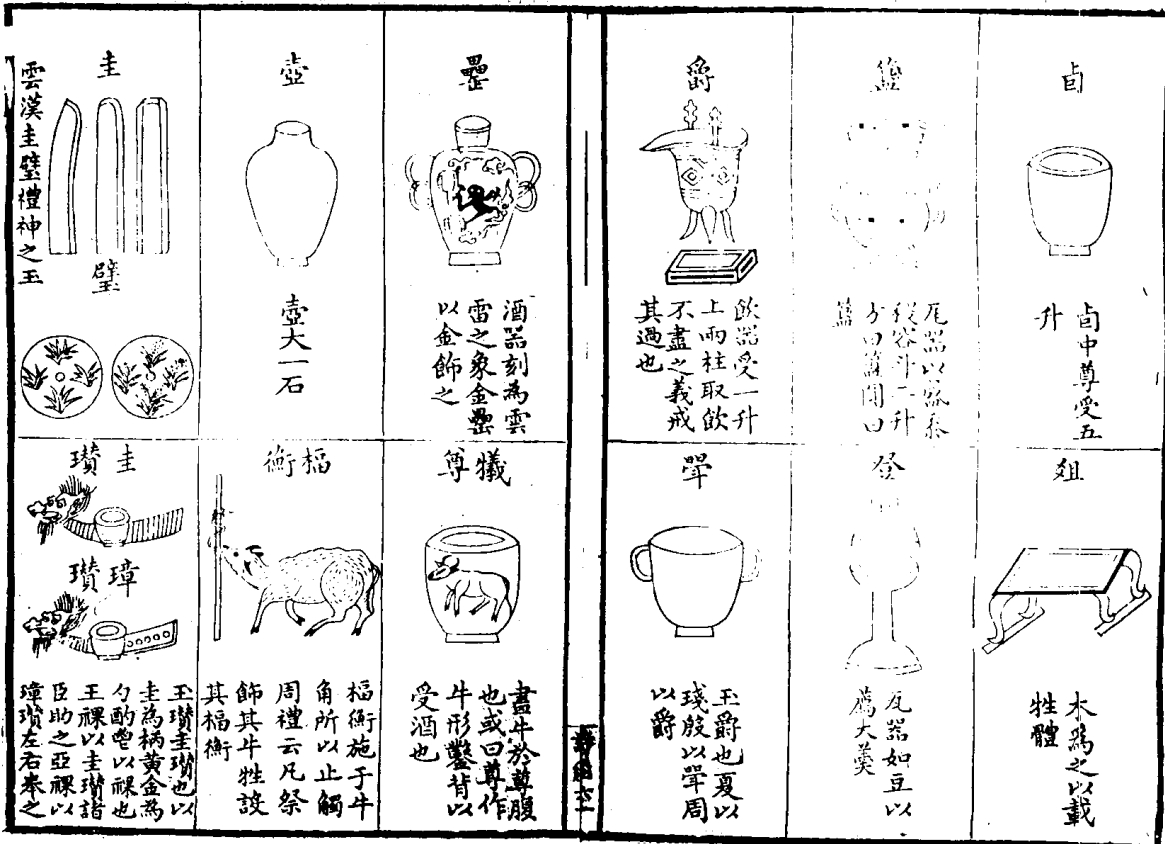 卣
卣中尊受五
升
簋
瓦器以盛黍
稷容斗二升
方曰簠圓曰
簋
爵
飲器受一升
上兩柱取飲
不盡之義戒
其過也
俎
木為之以載
牲體
登
瓦器如豆以
薦大羹
斝
玉爵也夏以
琖殷以斝周
以爵
罍
酒器刻為雲
雷之象金罍
以金飾之
壺
壺大一石
圭
璧
雲漢圭璧禮神之玉
犧尊
畫牛於尊腹
也或曰尊作
牛形鑿背以
受酒也
楅衡
楅衡施于牛
角所以止觸
周禮云凡祭
飾其牛牲設
其楅衡
圭瓚
璋瓚
玉瓚圭瓚也以
圭為柄黃金為
勺酌鬯以祼也
王祼以圭瓚諸
臣助之亞祼以
璋瓚左右奉之